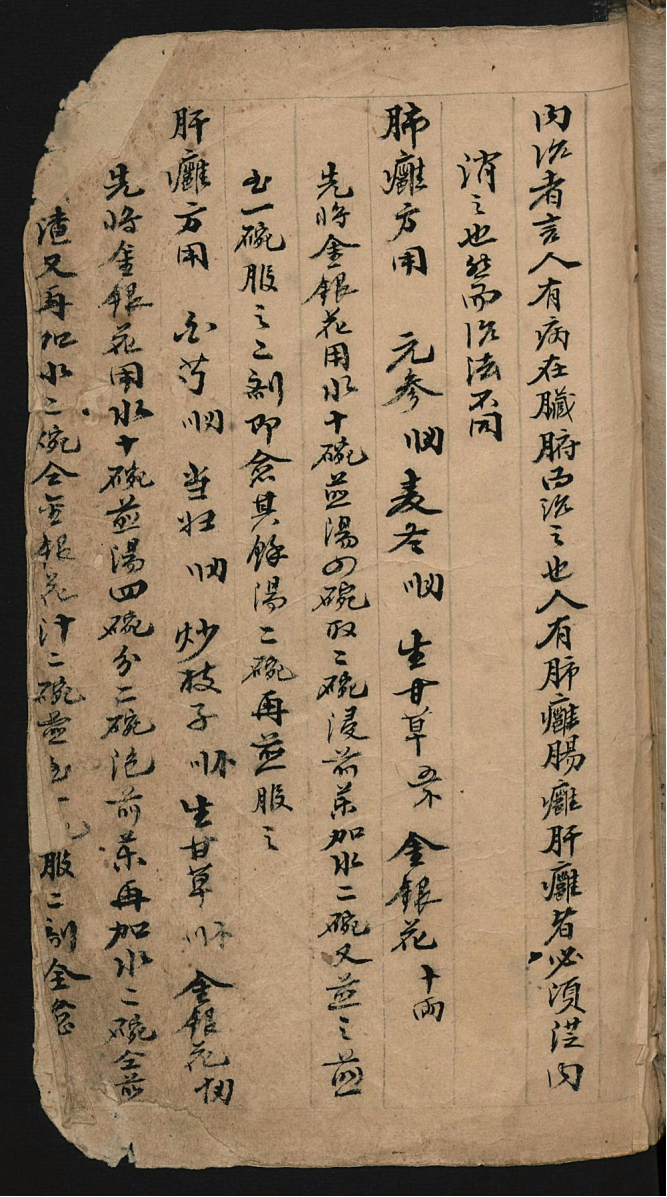 內治者言人有病在臟腑而治之也人有肺癰腸癰肝癰者必須從內
消之也然而治法不同
肺癰方用 元參 麦冬 生甘草 金銀花十兩
先將金銀花用水十碗煎湯四碗取二碗浸前藥加水二碗又煎之煎
至一碗服之二劑即愈其餘湯二碗再煎服之
肝癰方用 白芍 当归 炒枝子 生甘草 金銀花
先將金銀花用水十碗煎湯四碗分二碗泡前藥再加水二碗仝前
渣又再加水二碗仝金銀花汁二碗煎至一 服二劑全愈